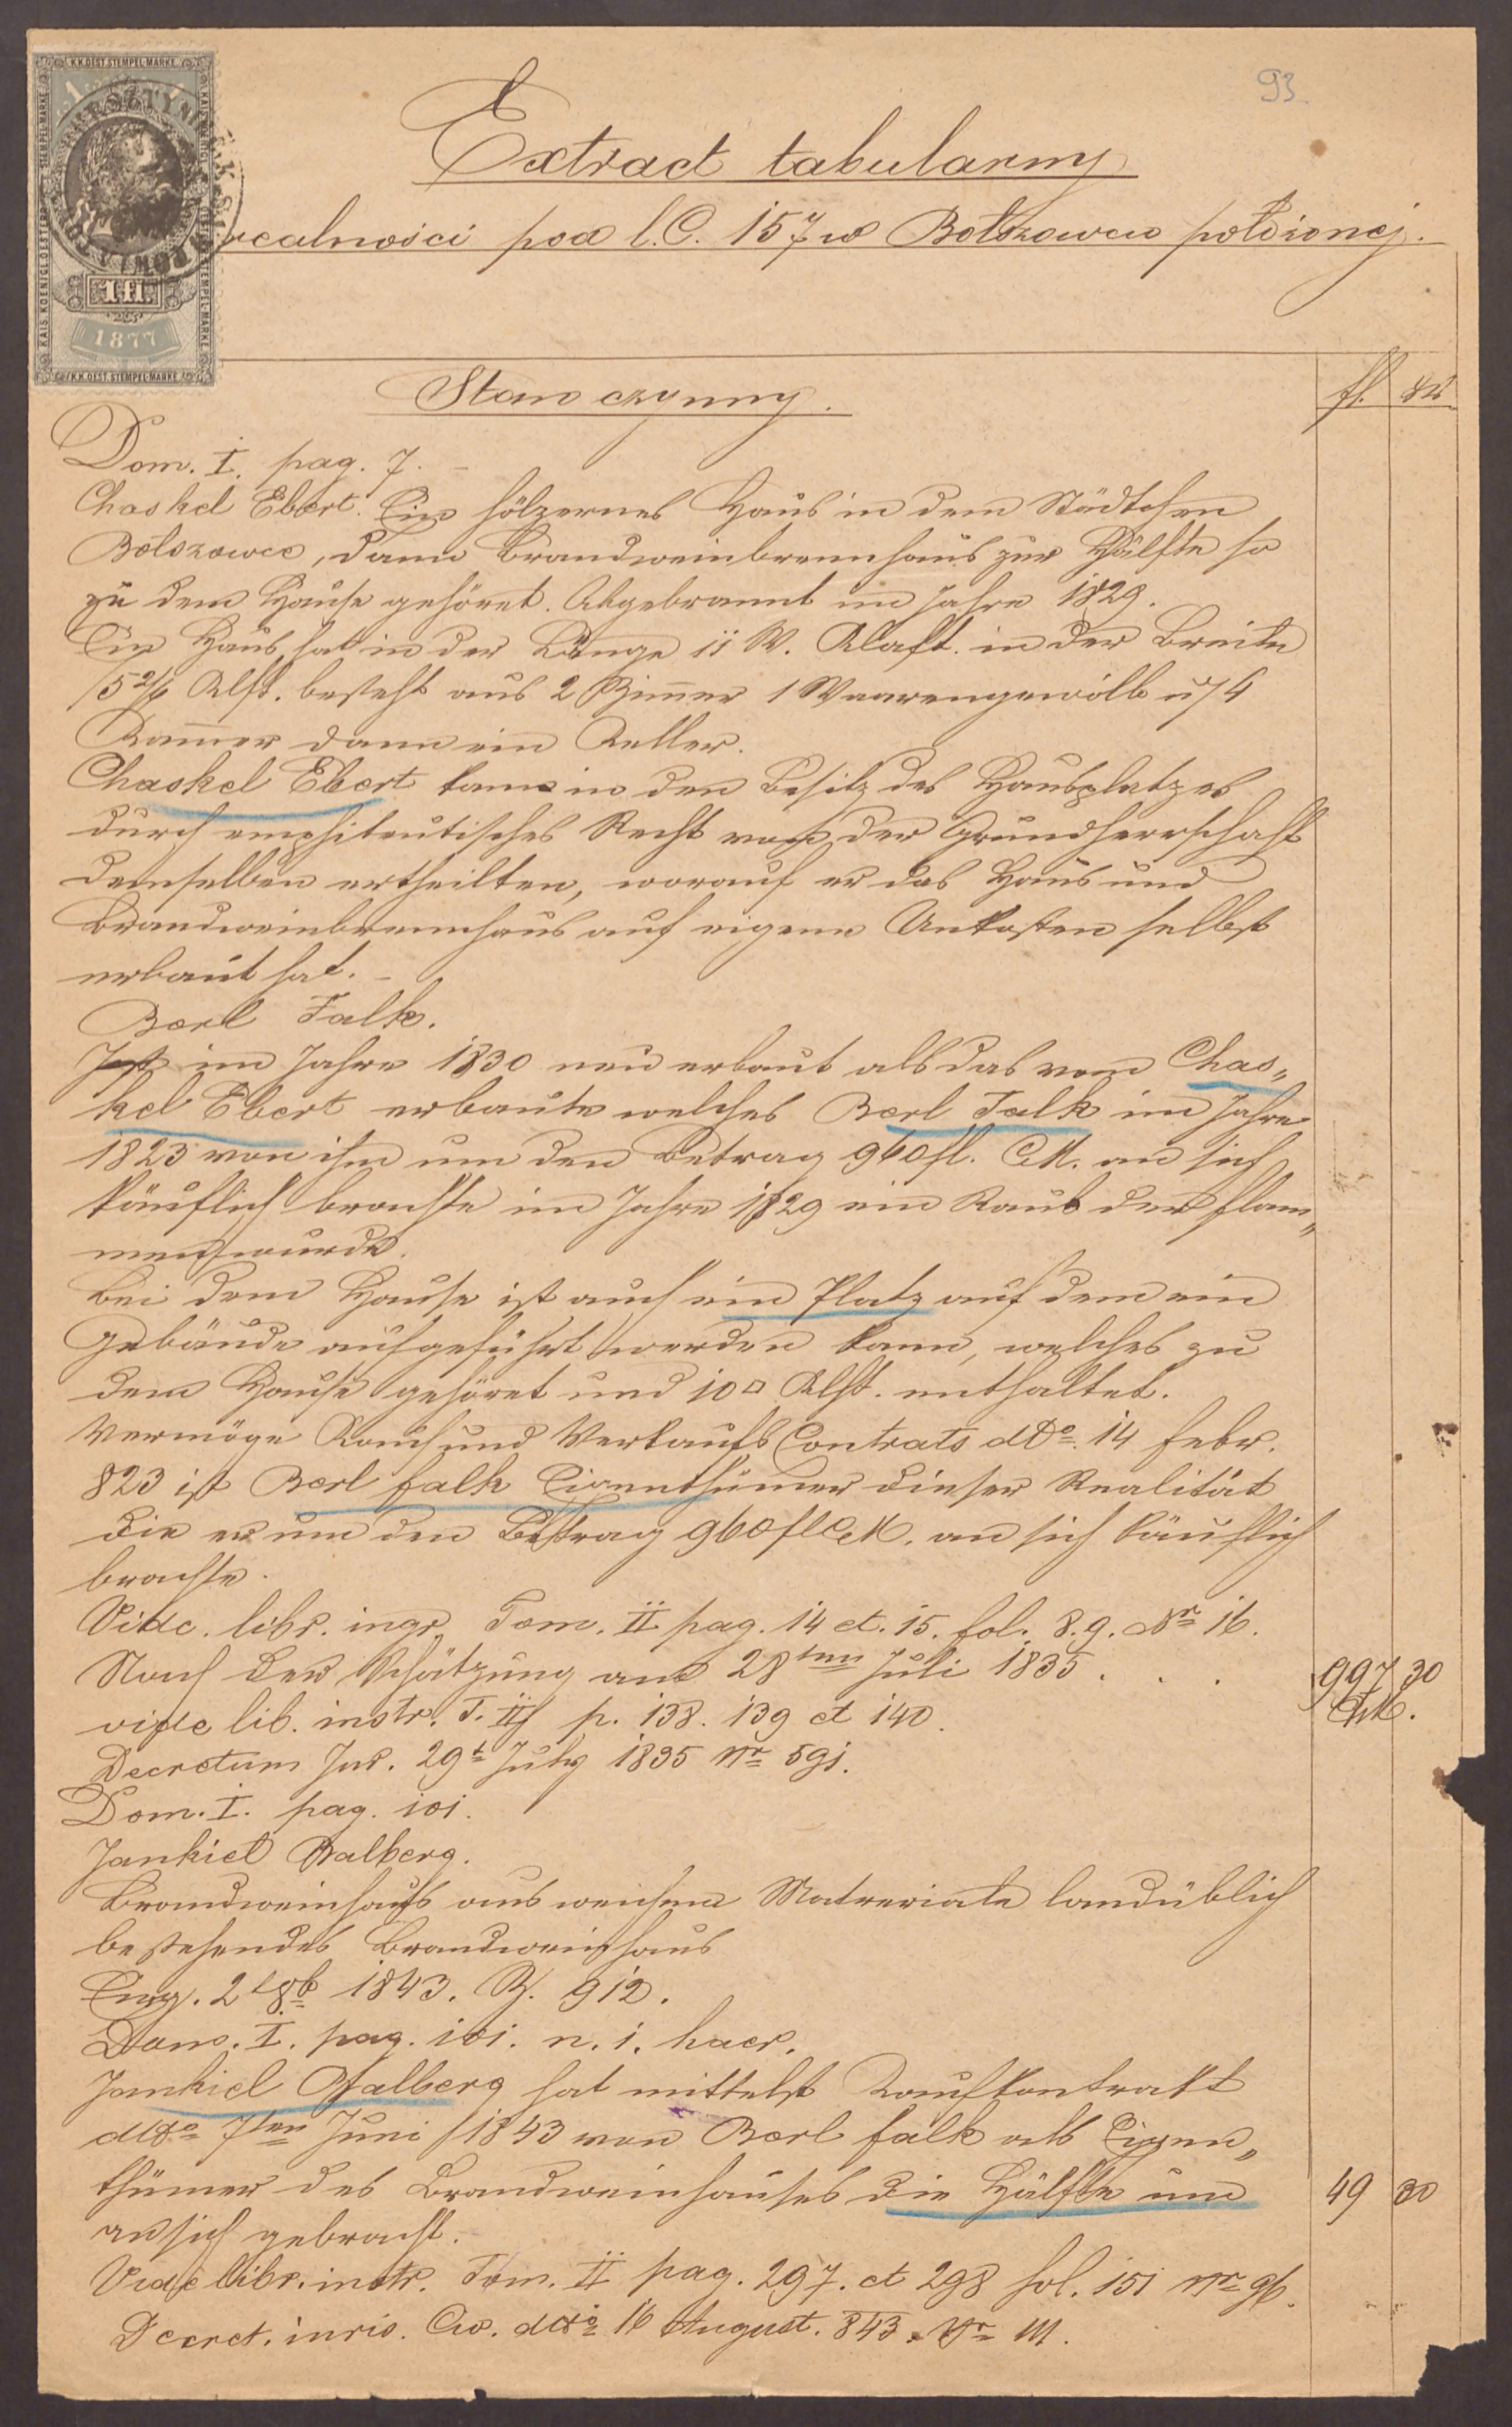 93
Extract tabularny
realności pod l.C. 157 w Bołszowcu położonej.
K.K. OEST. STEMPEL-MARKE
1 fl
1877
Stan czynny.
fl. kr
Dom. I. pag. 7.
Chaskel Ebert. Ein hölzernes Haus in dem Städtchen
Bolszowce, dann Brandweinbrennhaus zur Hälfte so
zu dem Hause gehöret. Abgebrannt im Jahre 1829.
Ein Haus hat in der Länge 11 W. Klaft. in der Breite
5 2/6 Klft. besteht aus 2 Zimmer 1 Waarengewölb u 4
Kamer dann ein Keller.
Chaskel Ebert kam in den Besitz des Hausplatzes
durch emphiteutisches Recht von der Grundherrschaft
demselben ertheilten, worauf er das Haus und
Brandweinbrennhaus auf eigene Unkosten selbst
erbaut hat. –
Berl Falk.
Ist im Jahre 1830 neu erbaut als das vom Chas„
kel Ebert erbaute welches Berl Falk im Jahre
1823 von ihm um den Betrag 960 fl. CM. an sich
käuflich brachte im Jahre 1829 ein Raub der Flam„
men wurde.
Bei dem Hause ist auch ein Platz auf dem ein
Gebäude aufgeführt werden kann, welches zu
dem Hause gehöret und 10 □ Klft. enthaltet.
Vermöge Kauf und Verkaufs Contrats ddo. 14 Febr.
823 ist Berl Falk Eigenthümer dieser Realität
die er um den Betrag 960 fl CM. an sich käuflich
brachte.
Vide. libr. ingr. Tom. II pag. 14 et. 15. fol. 8.9. Nr 16.
Nach der Schätzung am 28ten Juli 1835 . . . 997 30
CM.
vide lib. instr. T. II p. 138. 139 et 140.
Decretum Jud. 29t July 1835 Nr 591.
Dom. I. pag. 101.
Jankiel Balberg.
Brandweinhaus aus weichem Matreriale landüblich
bestehendes Brandweinhaus
Eing. 2 1843. Z. 912.
Dom. I. pag. 101. n. 1. haer.
Jankiel Balberg hat mittelst Kaufkontrakt
ddo 7ten Juni 1843 von Berl Falk als Eigen„
thümer des Brandweinhauses die Hälfte um 49 30
an sich gebracht.
Vide libr. instr. Tom. II pag. 297. et 298 fol. 151 Nr 96.
Decret. ddo 16 August. 843. Nr